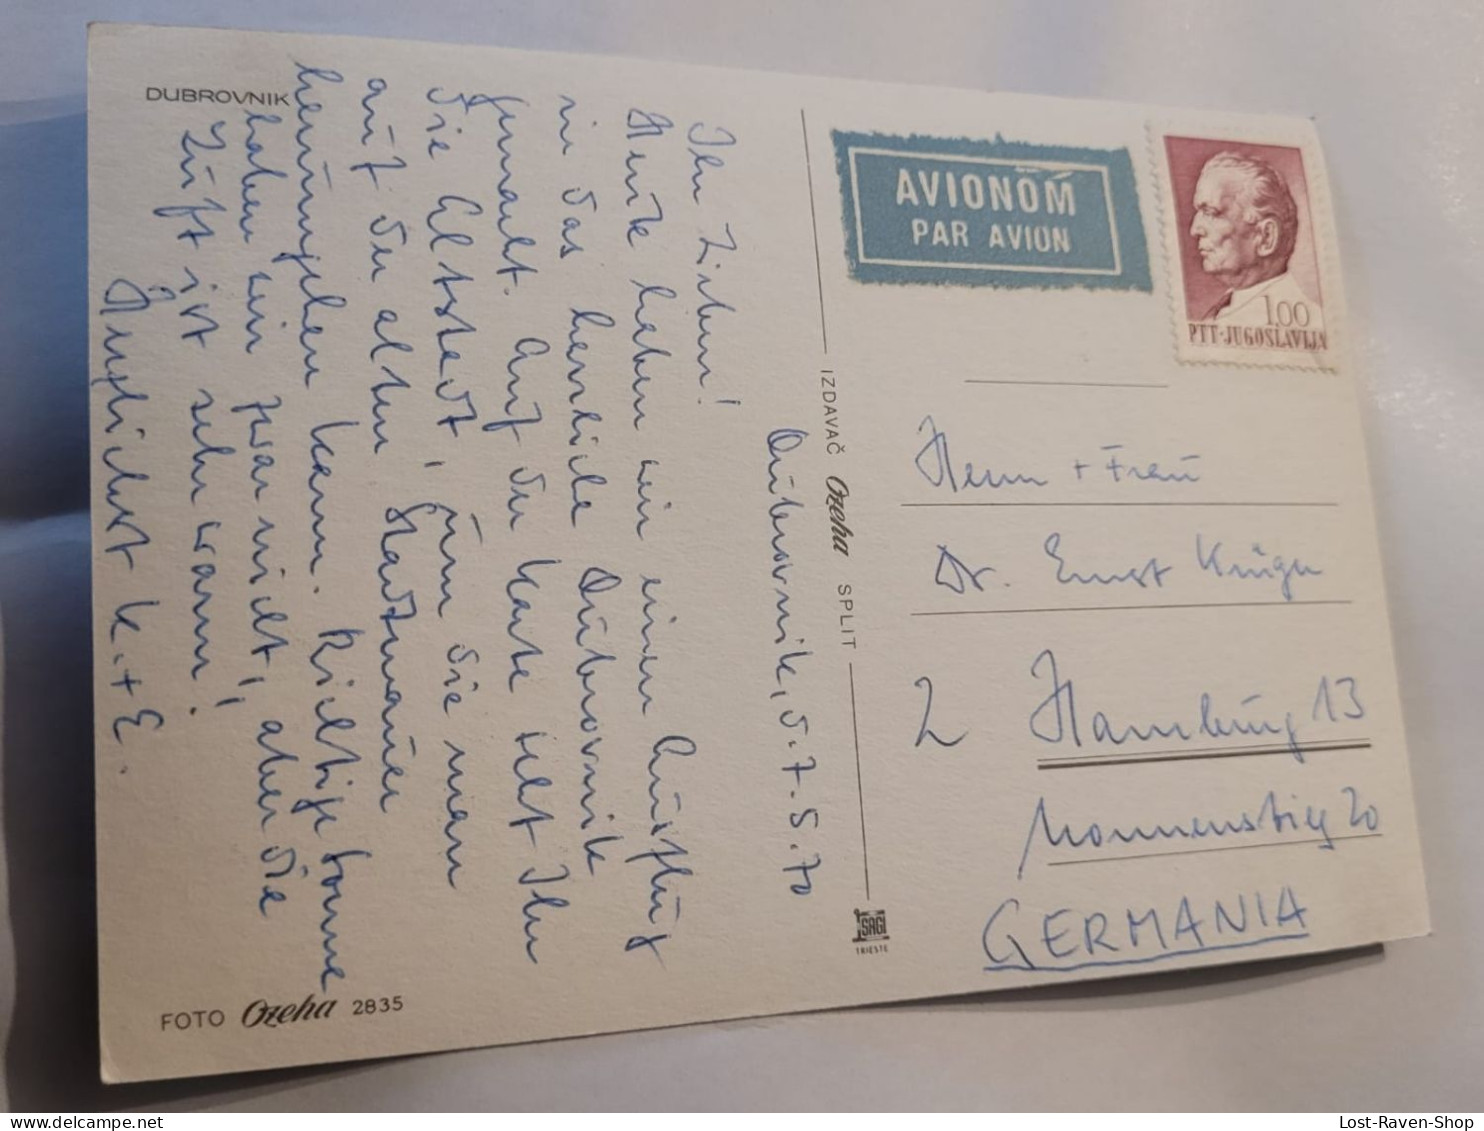 DUBROVNIK
Dubrovnik, d. 7.5.70
Ihr Lieben!
Heute haben wir einen Ausflug
in das herrliche Dubrovnik
gemacht. Auf der Karte seht Ihr
die Altstadt, um die man
auf der alten Stadtmauer
herumgehen kann. Richtige Sonne
haben wir zwar nicht, aber die
Luft ist sehr warm!
Herzlichst K. + E.
FOTO Ozeha 2835
IZDAVAČ Ozeha SPLIT
SAGI
TRIESTE
AVIONOM
PAR AVION
1.00
PTT-JUGOSLAVIJA
Herrn + Frau
Dr. Ernst Krüger
2 Hamburg 13
Nonnenstieg 20
GERMANIA
Lost-Raven-Shop